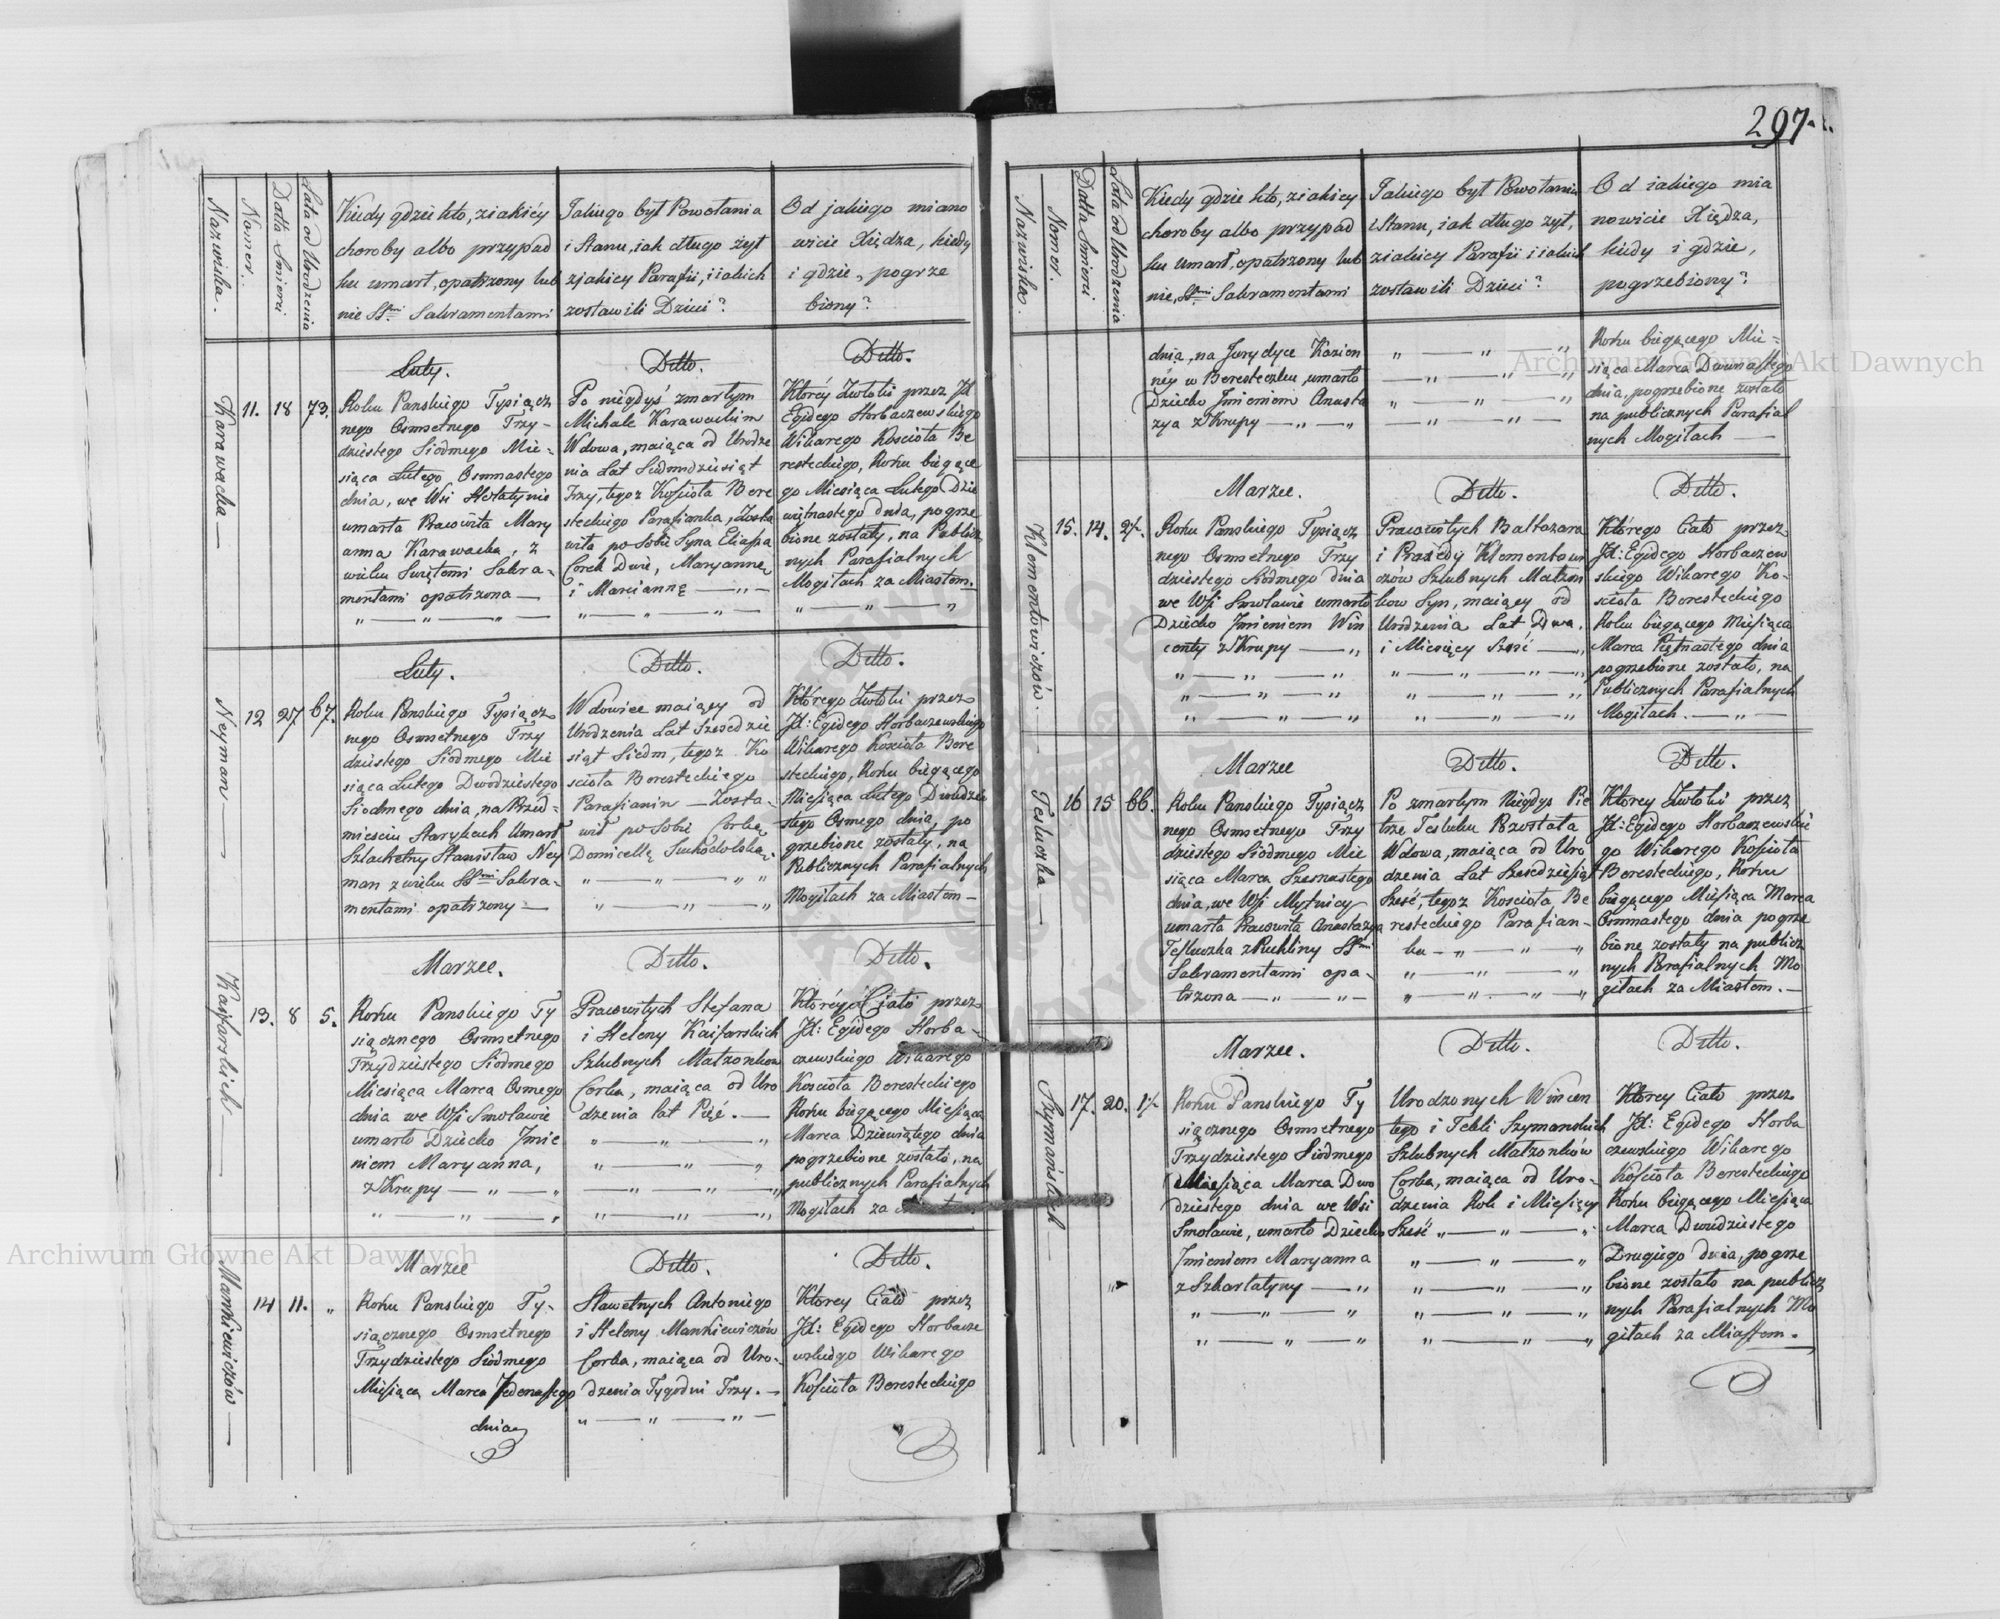 297.
Nazwiska.
Nomer.
Datta Smierci
Lata od Urodzenia
Kiedy gdzie kto, z iakiéy
choroby albo przypad
ku umarł, opatrzony lub
nie SSmi Sakramentami
Jakiego był Powołania
i Stanu, iak długo żył
z jakiey Parafii, i iakich
zostawili Dzieci?
Od jakiego miano
wicie Xiędza, kiedy
i gdzie, pogrze
biony?
Karawacka
11. 18 73.
Luty.
Roku Panskiego Tysiącz
nego Osmsetnego Trzy-
dziestego Siodmego Mie-
siąca Lutego Osmnastego
dnia, we Wsi Hołatynie
umarła Pracowita Mary
anna Karawacka, z
wieku Swiętemi Sakra-
mentami opatrzona
Ditto.
Po niegdyś zmarłym
Michale Karawackim
Wdowa, maiąca od Urodze
nia Lat Siedmdziesiąt
Trzy, tegoż Kościoła Bere
steckiego Parafianka, Zosta
wiła po Sobie Syna Eliasza
Corek Dwie, Maryannę
i Marciannę
Ditto.
Któréy Zwłoki przez Jd
Egidego Horbaczewskiego
Wikarego Kościoła Be
resteckiego, Roku biegące
go Miesiąca Lutego Dzie
więtnastego dnia, pogrze
bione zostały, na Publicz
nych Parafialnych
Mogiłach za Miastem.
Neyman
12 27 67.
Luty.
Roku Panskiego Tysiącz
nego Osmsetnego Trzy
dziestego Siodmego Mie
siąca Lutego Dwudziestego
Siodmego dnia, na Przed-
miesciu Starykach Umarł
Szlachetny Stanisław Ney
man z wieku SSmi Sakra-
mentami opatrzony
Ditto.
Wdowiec maiący od
Urodzenia Lat Szescdzie
siąt Siedm, tegoż Ko
scioła Beresteckiego
Parafianin — Zosta-
wił po Sobie Corkę
Domicellę Suchodolską
Ditto.
Którego Zwłoki przez
Jd: Egidego Horbaczewskiego
Wikarego Kościoła Bere
steckiego, Roku biegącego
Miesiąca Lutego Dwudzie
stego Osmego dnia, po
grzebione zostały, na
Publicznych Parafialnych
Mogiłach za Miastem
Kaifarskich
13. 8 5.
Marzec.
Roku Panskiego Ty
siącznego Osmsetnego
Trzydziestego Siodmego
Miesiąca Marca Osmego
dnia we Wsi Smolawie
umarło Dziecko Jmie
niem Maryanna,
z Krupy
Ditto.
Pracowitych Stefana
i Heleny Kaifarskich
Szlubnych Małzonkow
Corka, maiąca od Uro
dzenia lat Pięć.
Ditto.
Któréy Ciało przez
Jd: Egidego Horba-
czewskiego Wikarego
Kościoła Beresteckiego
Roku biegącego Miesiąca
Marca Dziewiątego dnia
pogrzebione zostało, na
publicznych Parafialnych
Mogiłach za
Mankiewiczów
14 11. "
Marzec
Roku Panskiego Ty-
siącznego Osmsetnego
Trzydziestego Siodmego
Miesiąca Marca Jedenastego
dnia
Ditto.
Sławetnych Antoniego
i Heleny Mankiewiczów
Corka, maiąca od Uro-
dzenia Tygodni Trzy.
Ditto.
Ktorey Ciało przez
Jd: Egidego Horbacze
wskiego Wikarego
Kościoła Beresteckiego
Nazwiska.
Nomer.
Datta Smierci
Lata od Urodzenia
Kiedy gdzie kto, z iakiey
choroby albo przypad
ku umarł, opatrzony lub
nie, SSmi Sakramentami
Jakiego był Powołania
i Stanu, iak długo żył,
z iakiey Parafii i iakich
zostawili Dzieci?
Od iakiego mia
nowicie Xiędza,
kiedy i gdzie,
pogrzebiony?
dnia, na Jurydyce Kazien
néy w Beresteczku, umarło
Dziecko Jmieniem Anasta
zya z Krupy
Roku biegącego Mie-
siąca Marca Dwunastego
dnia, pogrzebione zostało
na publicznych Parafial
nych Mogiłach
Klementowiczów
15. 14. 2½.
Marzec.
Roku Panskiego Tysiącz
nego Osmsetnego Trzy
dziestego Siodmego dnia
we Wsi Smolawie umarło
Dziecko Jmieniem Win
centy z Krupy
Ditto.
Pracowitych Baltazara
i Praxedy Klementowi
czów Szlubnych Małzon
kow Syn, maiący od
Urodzenia Lat Dwa,
i Miesięcy Szesć
Ditto.
Którego Ciało przez
Jd: Egidego Horbaczew
skiego Wikarego Ko-
scioła Beresteckiego
Roku biegącego Miesiąca
Marca Piętnastego dnia
pogrzebione zostało, na
Publicznych Parafialnych
Mogiłach.
Tesluczka
16 15 66.
Marzec
Roku Panskiego Tysiącz
nego Osmsetnego Trzy
dziestego Siodmego Mie
siąca Marca Szesnastego
dnia, we Wsi Mytnicy
umarła Pracowita Anastazya
Tesluczka z Puchliny SSmi
Sakramentami opa-
trzona
Ditto.
Po zmarłym Niegdyś Pie
trze Tesluku Pozostała
Wdowa, maiąca od Uro
dzenia Lat Szescdziesiąt
Szesć, tegoż Kościoła Be
resteckiego Parafian-
ka
Ditto.
Ktorey Zwłoki przez
Jd: Egidego Horbaczewskie
go Wikarego Kościoła
Beresteckiego, Roku
biegącego Miesiąca Marca
Osmnastego dnia pogrze
bione zostały na publicz
nych Parafialnych Mo
giłach za Miastem.
Szymańskich
17. 20. 1½
Marzec.
Roku Panskiego Ty
siącznego Osmsetnego
Trzydziestego Siodmego
Miesiąca Marca Dwu
dziestego dnia we Wsi
Smolawie, umarło Dziecko
Jmieniem Maryanna
z Szkarlatyny
Ditto.
Urodzonych Wincen
tego i Tekli Szymanskich
Szlubnych Małzonków
Corka, maiąca od Uro-
dzenia Rok i Miesięcy
Szesć
Ditto.
Ktorey Ciało przez
Jd: Egidego Horba
czewskiego Wikarego
Kościoła Beresteckiego
Roku biegącego Miesiąca
Marca Dwudziestego
Drugiego dnia, pogrze
bione zostało na publicz
nych Parafialnych Mo
giłach za Miastem.
Archiwum Główne Akt Dawnych
Archiwum Główne Akt Dawnych